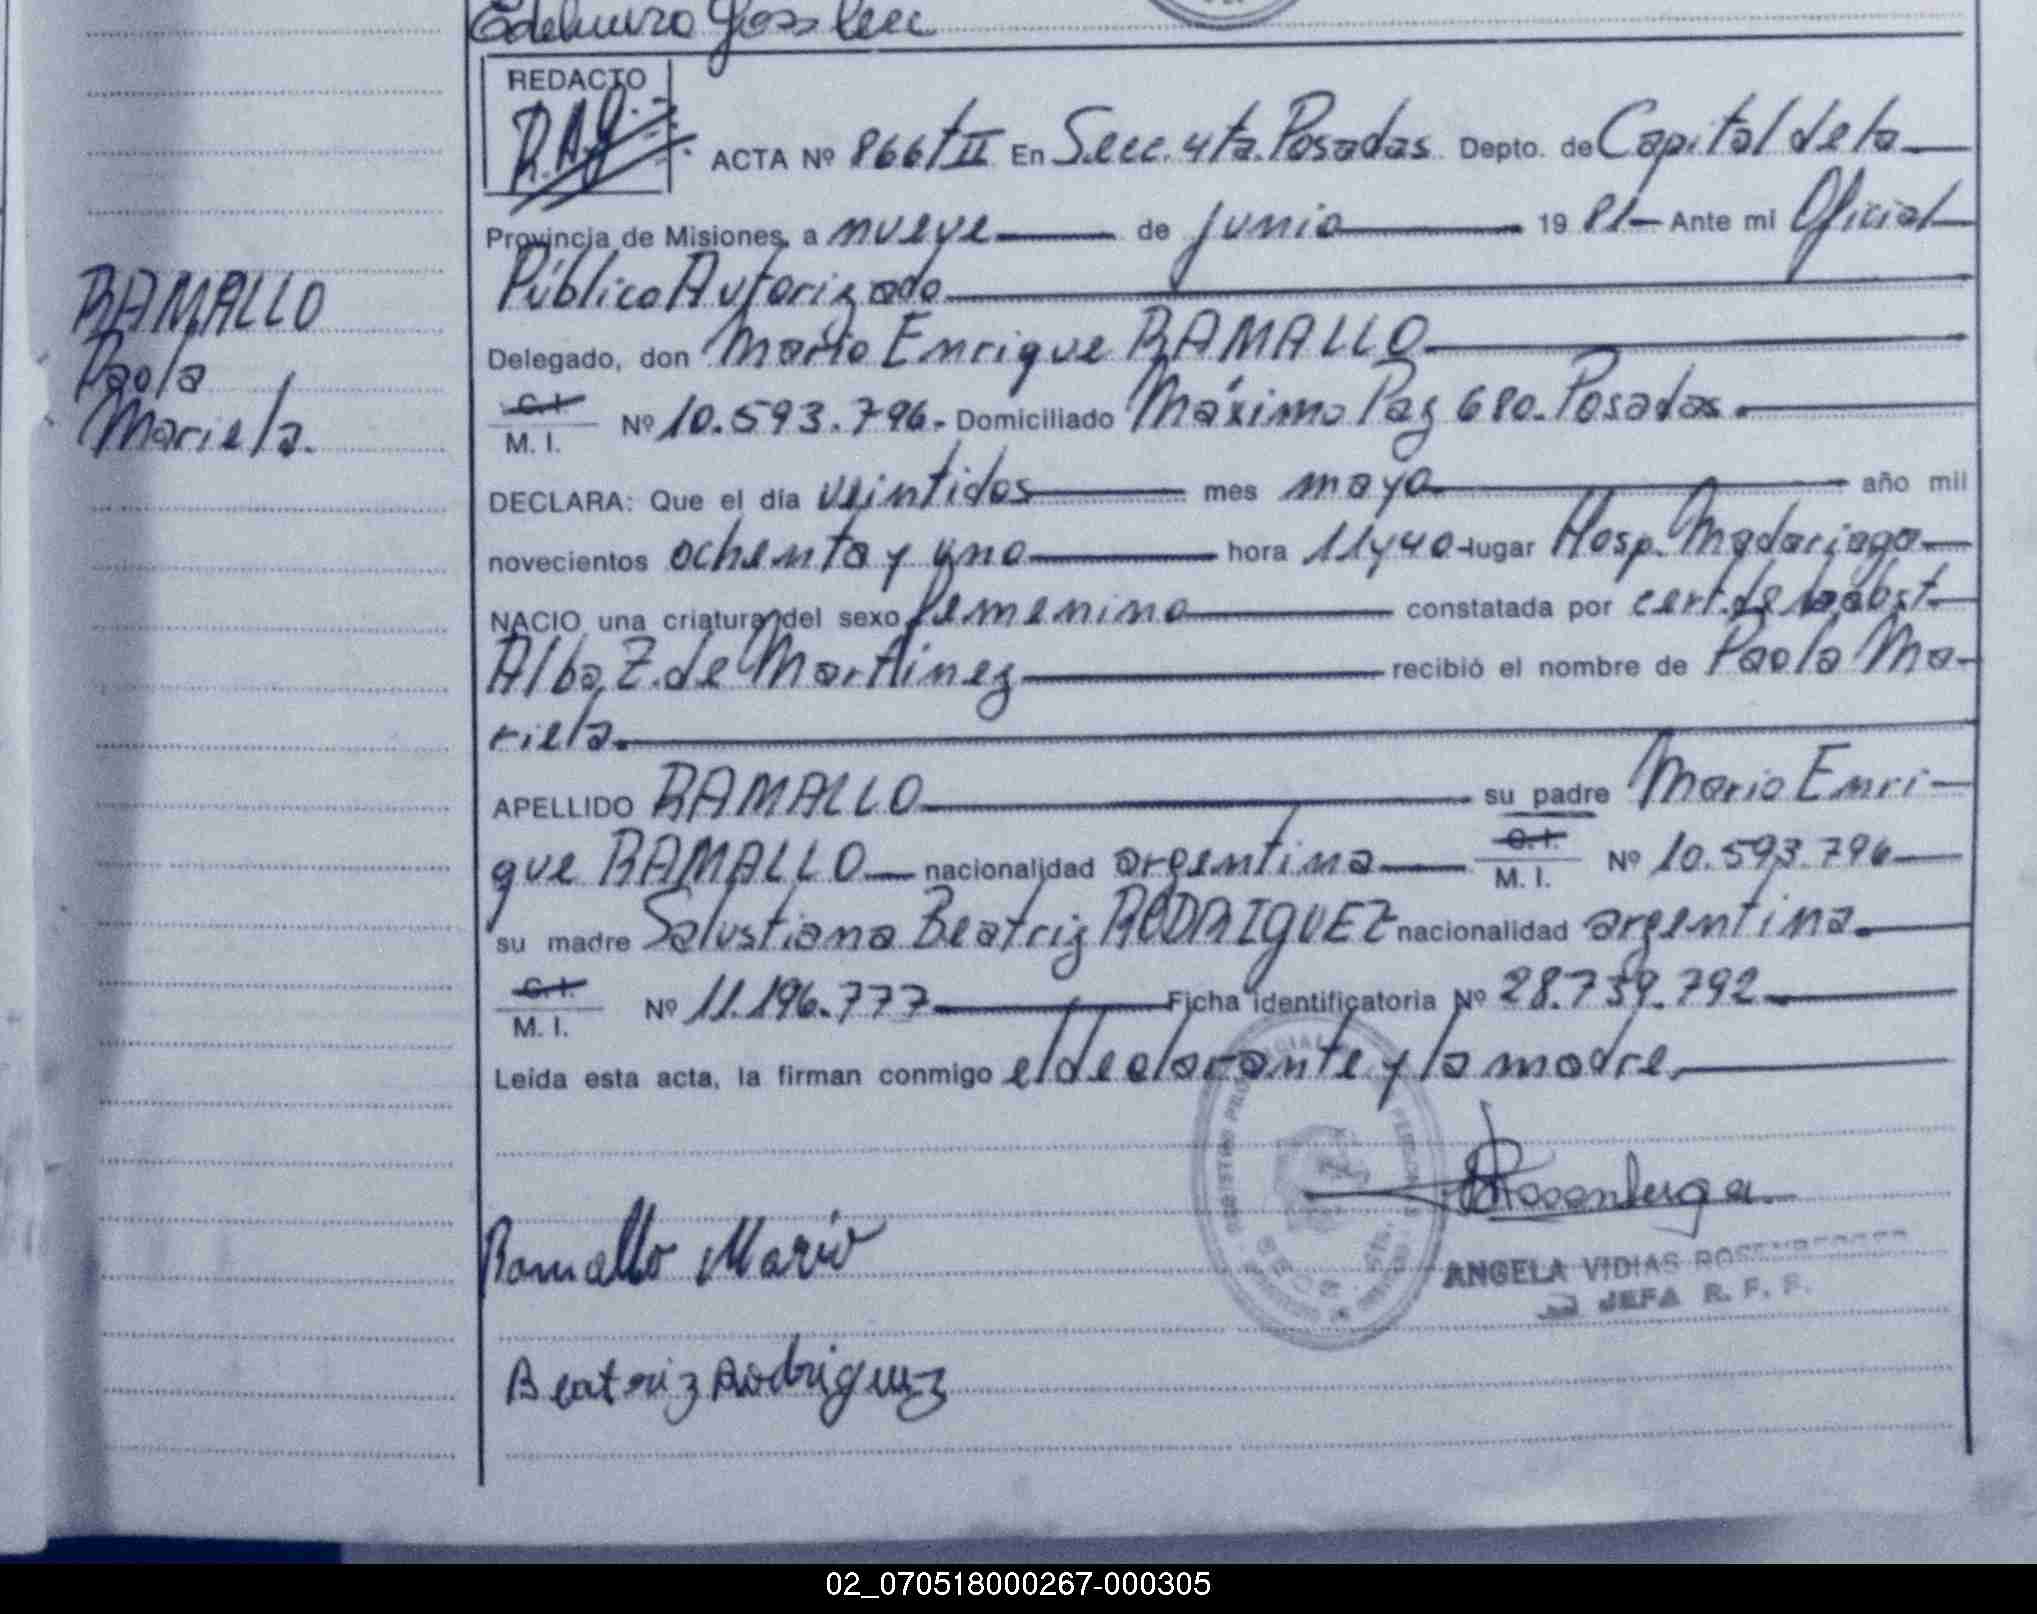 REDACTO
ACTA Nº 866/T II En Secc. 4ta. Posadas. Depto. de Capital de la
Provincia de Misiones, a nueve de junio 19 81 - Ante mi Oficial
Público Autorizado
RAMALLO
Paola
Mariela.
Delegado, don Mario Enrique RAMALLO
C.I.
M. I. Nº 10.593.796.- Domiciliado Máximo Paz 680. Posadas.
DECLARA: Que el día veintidos mes mayo año mil
novecientos ochenta y uno hora 11y40- lugar Hosp. Madariaga
NACIO una criatura del sexo femenino constatada por cert. de la obst.
Alba Z. de Martinez recibió el nombre de Paola Ma-
riela.
APELLIDO RAMALLO su padre Mario Enri-
que RAMALLO nacionalidad argentina C.I.
M. I. Nº 10.593.796
su madre Salustiana Beatriz RODRIGUEZ nacionalidad argentina.
C.I.
M. I. Nº 11.196.777 Ficha identificatoria Nº 28.739.792
Leída esta acta, la firman conmigo el declarante y la madre.
Ramallo Mario
ANGELA VIDIAS ROSENBERGER
JEFA R. P. P.
Beatriz Rodriguez
02_070518000267-000305